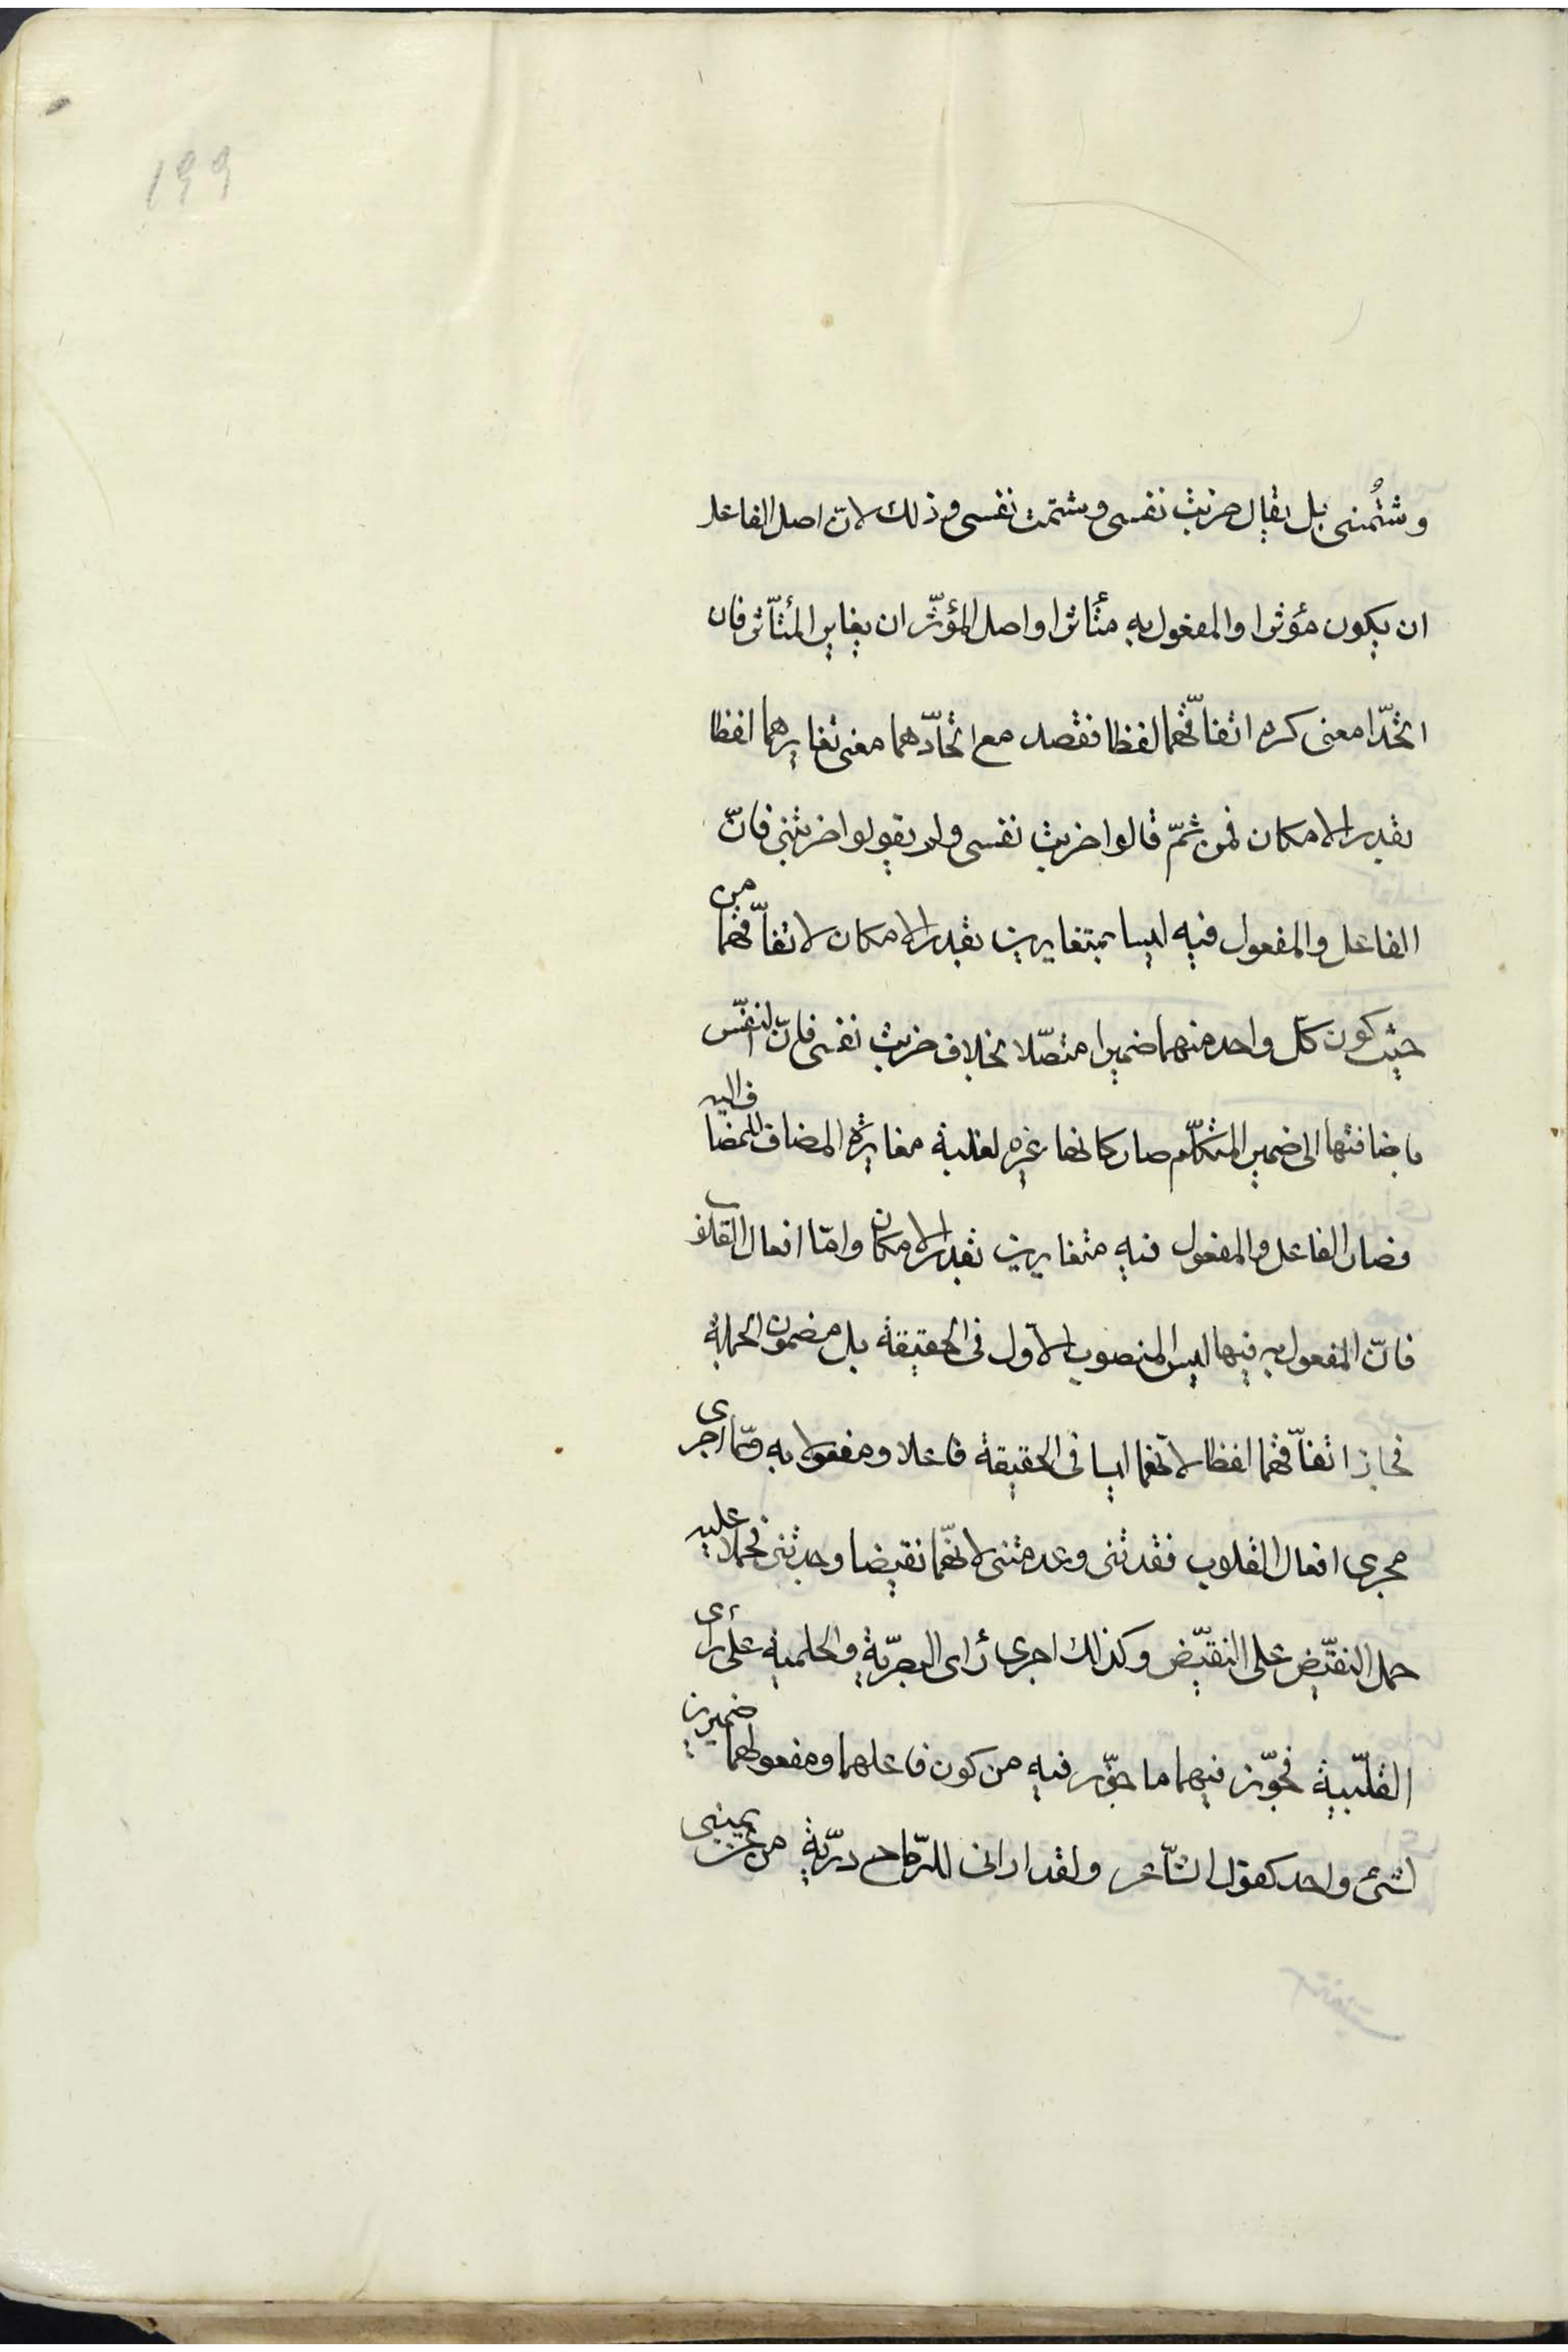 ١٩٩
وشتُمنى بل يقال ضربت نفسى وشتمت نفسى وذلك لانّ اصل الفاعل
ان يكون مؤثرا والمفعول به متأثرا واصل المؤثّر ان يغاير المتأثّر فان
اتحّدا معنى كره اتفاقّهما لفظا فقصد مع اتحادّهما معنى تغايرهما لفظا
بقدر الامكان فمن ثمّ قالوا ضربت نفسى ولم يقولوا ضربتنى فانّ
الفاعل والمفعول فيه ليسا بمتغايرين بقدر الامكان لاتفاقّهما من
حيث كون كلّ واحد منهما ضميرا متصّلا بخلاف ضربت نفسى فانّ النفّس
باضافتها الى ضمير المتكلّم صار كانها غيره لغلبة مغايرة المضاف للمضاف اليه
فصار الفاعل والمفعول فيه متغايرين بقدر الامكان وامّا افعال القلوب
فانّ المفعول به فيها ليس المنصوب الاوّل فى الحقيقة بل مضمون الجملة
فجاز اتفاقّهما لفظا لانّهما ليسا فى الحقيقة فاعلا ومفعولا به وممّا اجرى
مجرى افعال القلوب فقدتنى وعدمتنى لانهّما نقيضا وجدتنى فحملا عليه
حمل النقيّض على النقيّض وكذلك اجرى رأى البصرّية والحلمية على رأى
القلبّية فجوّز فيهما ما جوّز فيه من كون فاعلهما ومفعولهما ضميرين
لشئ واحد كقول الشّاعر ولقد ارانى للرّماح درّية من عن يمينى